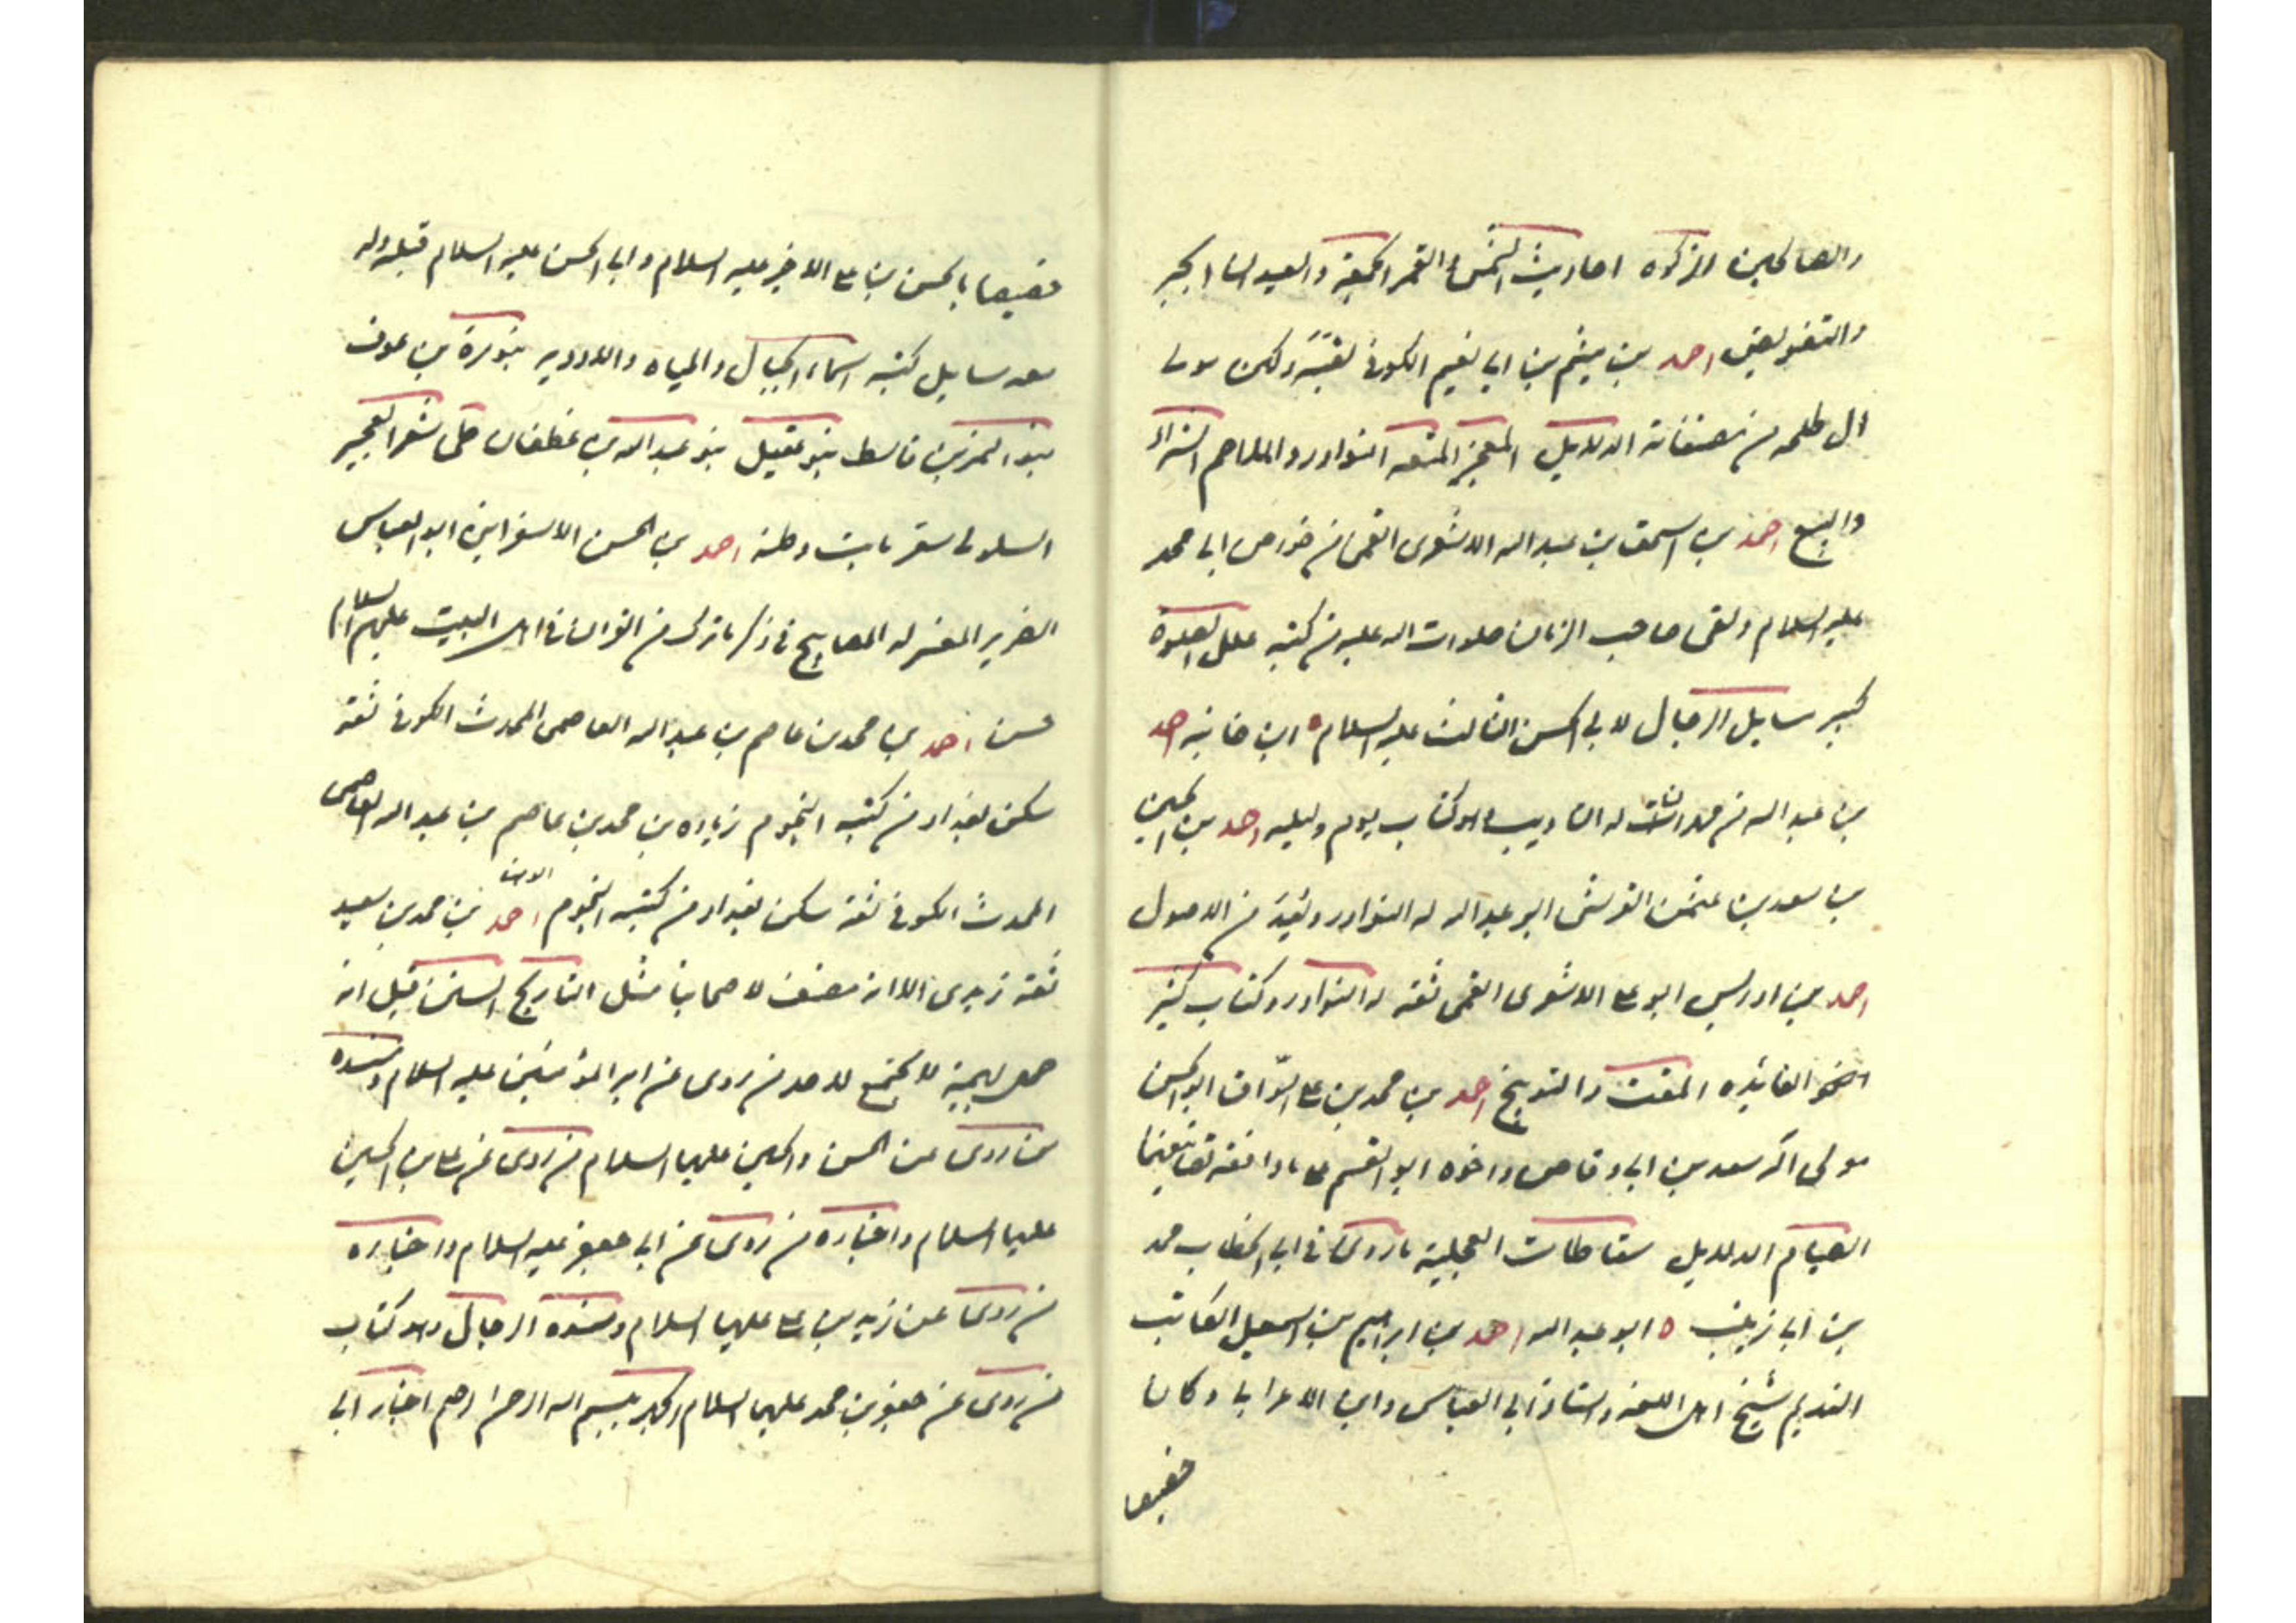 والصالحين الزكوة احاديث الشمس والقمر الجمعة والعيدان الجبر
والتفويض احمد بن ميثم بن ابي نعيم الكوفي ثقة وكان مولى
ال طلحه من مصنفاته الدلايل المتعه النوادر والملاحم الشراء
والبيع احمد بن اسحق بن عبد الله الاشعرى القمى من خواص ابى محمد
عليه السلام ولقى صاحب الزمان صلوات الله عليه من كتبه علل الصلوة
كبير مسايل الرجال لابى الحسن الثالث عليه السلام ه ابن خانبه احمد
بن عبد الله من له التاديب وهو كتاب يوم وليله احمد بن الحسين
بن سعد بن عثمن القرشى ابو عبد الله له النوادر ومن الاصول
احمد بن ادريس ابو على الاشعرى القمى ثقه له النوادر وكتاب كثير
الفائده المقت والتوبيخ احمد بن محمد بن على السواق ابو الحسن
مولى آل سعد بن ابى وقاص واخوه ابو القسم على
الصيام الدلايل سقاطات العجلية ماروى فى ابى الخطاب محمد
بن ابى زينب ه ابو عبد الله احمد بن ابراهيم بن اسمعيل الكاتب
النديم شيخ اهل اللغه واستاذ ابى العباس وابن الاعرابى وكان
خصيصا
خصيصا بالحسن بن على الاخير عليه السلام وابى الحسن عليه السلام قبله وله
معه مسايل كتبه اسماء الجبال والمياه والاوديه بنو مرة بن عوف
بنو النمر بن قاسط بنو عقيل بنو عبد الله بن غطفان طى شعر العجير
السلولى شعر ثابت قطنه احمد بن الحسن الاسفراينى ابو العباس
الضرير المفسر له المصابيح فى ذكر ما نزل من القران فى اهل البيت عليهم السلام
حسن احمد بن محمد بن عاصم بن عبد الله العاصمى المحدث الكوفى ثقه
سكن بغداد من كتبه النجوم زياده بن محمد بن عاصم بن عبد الله العاصمى
المحدث الكوفى ثقه سكن بغداد من كتبه النجوم احمد بن محمد بن سعيد
ثقه زيدى الا انه مصنف لاصحابنا مثل التاريخ السنن قيل انه
حمل بهيمة لا يجتمع لاحد من روى عن امير المؤمنين عليه السلام ومسنده
من روى عن الحسن والحسين عليهما السلام من روى عن على بن الحسين
عليهما السلام واخباره من روى عن ابى جعفر عليه السلام واخباره
من روى عن زيد بن على عليهما السلام ومسنده الرجال وهو كتاب
من روى عن جعفر بن محمد عليهما السلام الجهر ببسم الله الرحمن الرحيم اخبار ابى